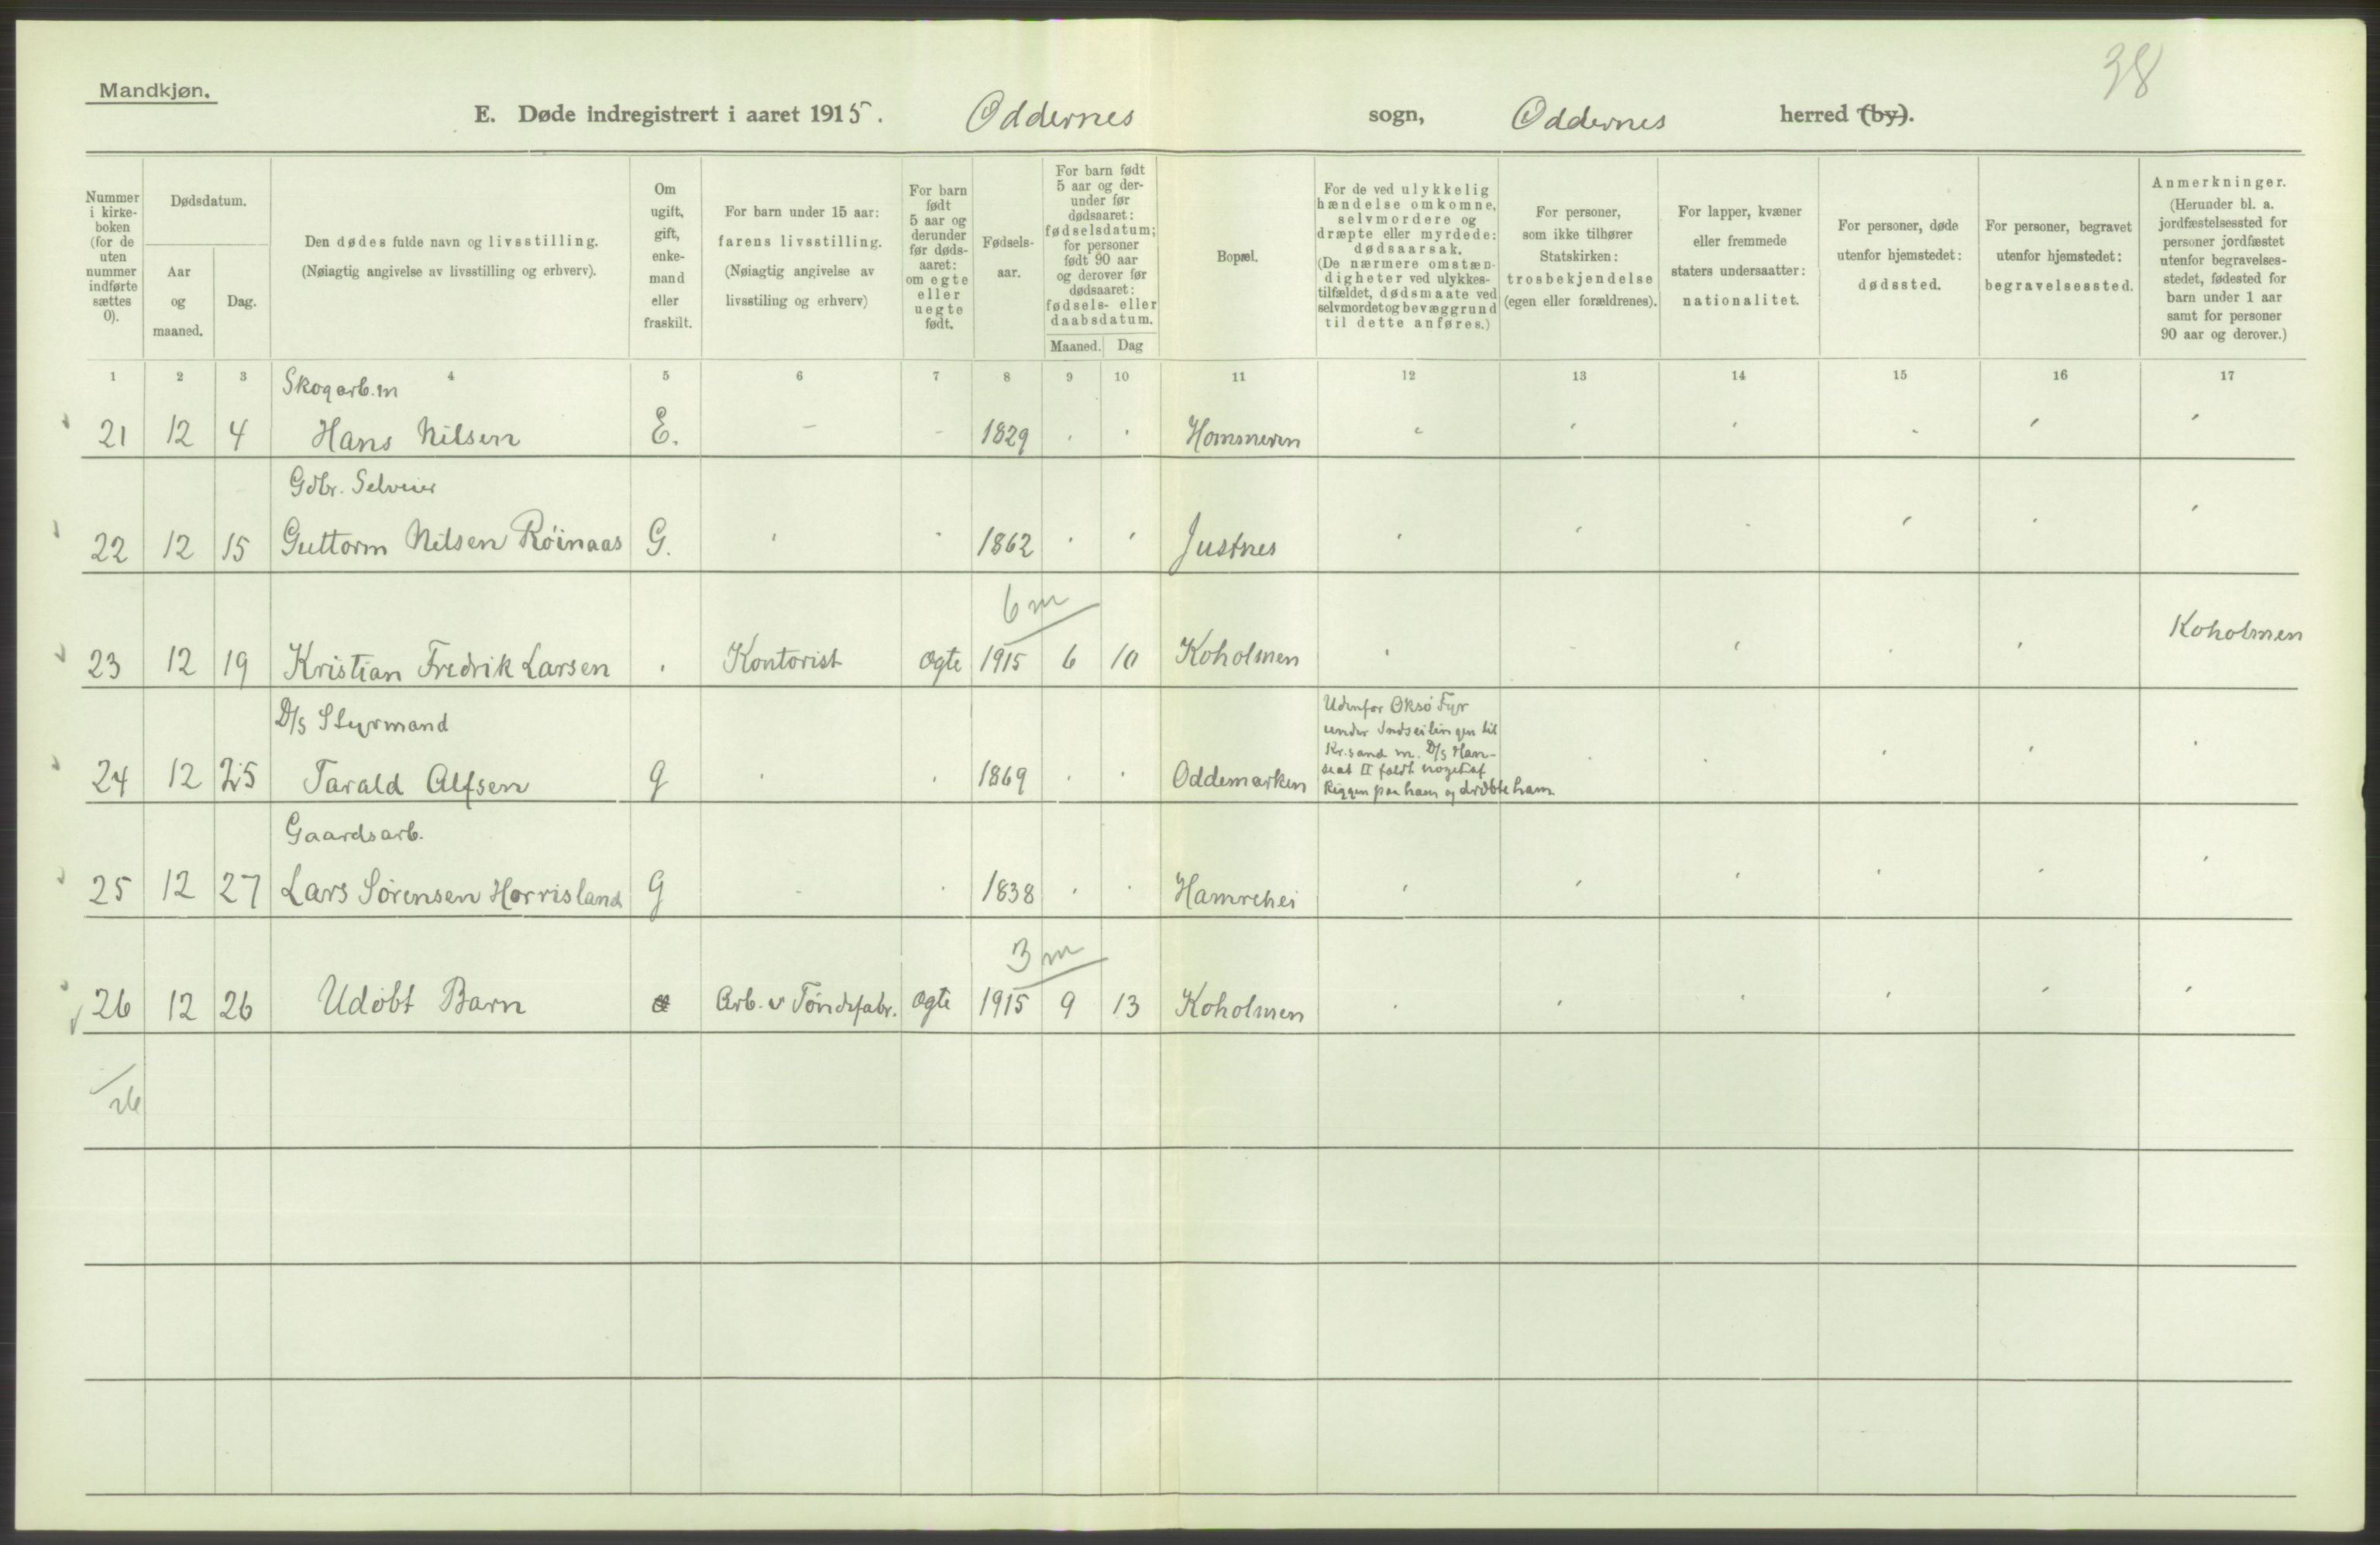 38
Mandkjøn.
E. Døde indregistrert i aaret 1915. Oddernes sogn, Oddernes herred (by).
Nummer i kirke- boken (for de uten nummer indførte sættes 0).
Dødsdatum.
Aar og maaned.
Dag.
Den dødes fulde navn og livsstilling.
(Nøiagtig angivelse av livsstilling og erhverv).
Om ugift, gift, enke- mand eller fraskilt.
For barn under 15 aar: farens livsstilling.
(Nøiagtig angivelse av livsstiling og erhverv)
For barn født 5 aar og derunder før døds- aaret: om egte eller uegte født.
Fødsels- aar.
For barn født 5 aar og der- under før dødsaaret: fødselsdatum; for personer født 90 aar og derover før dødsaaret: fødsels- eller daabsdatum.
Maaned. Dag
Bopæl.
For de ved ulykkelig hændelse omkomne, selvmordere og dræpte eller myrdede: dødsaarsak.
(De nærmere omstæn- digheter ved ulykkes- tilfældet, dødsmaate ved selvmordet og bevæggrund til dette anføres.)
For personer, som ikke tilhører Statskirken: trosbekjendelse (egen eller forældrenes).
For lapper, kvæner eller fremmede staters undersaatter: nationalitet.
For personer, døde utenfor hjemstedet: dødssted.
For personer, begravet utenfor hjemstedet: begravelsessted.
Anmerkninger.
(Herunder bl. a. jordfæstelsessted for personer jordfæstet utenfor begravelses- stedet, fødested for barn under 1 aar samt for personer 90 aar og derover.)
1 2 3 4 5 6 7 8 9 10 11 12 13 14 15 16 17
Skogarb.m
21 12 4 Hans Nilsen E. 1829
Gdbr. Selveier
22 12 15 Guttorm Nilsen Röinaas G. 1862 Justnes
6 m
23 12 19 Kristian Fredrik Larsen Kontorist Ogte 1915 6 10 Koholmen Koholmen
D/s Styrmand
24 12 25 Tarald Alfsen g 1869 Oddemarken
Udenfor Oksö Fyr
under Indseilingen til
Kr.sand m. D/s Han-
seat II faldt noget af
Riggen paa ham og dræbte ham
Gaardsarb.
25 12 27 Lars Sörensen Horrisland G 1838 Hamrehei
3 m
26 12 26 Udöbt Barn Arb. v Töndefabr. Ogte 1915 9 13 Koholmen
26